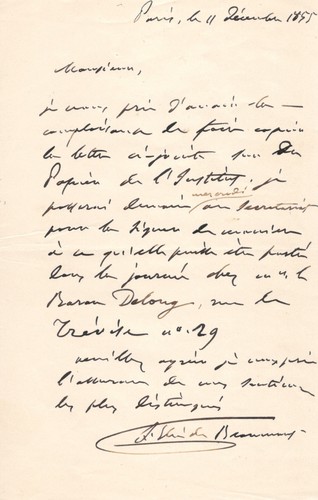 Paris, le 11 décembre 1855
Monsieur,
je vous prie d'avoir la
complaisance de faire copier
la lettre ci-jointe sur du
Papier de l'Institut. je
passerai demain mercredi au Secretariat
pour la signer de manière
à ce qu'elle puisse être portée
dans la journée chez M. le
Baron Delong, rue de
Trévise n° 29
veuillez agréer je vous prie
l'assurance de mes sentimens
les plus distingués
L. Elie de Beaumont